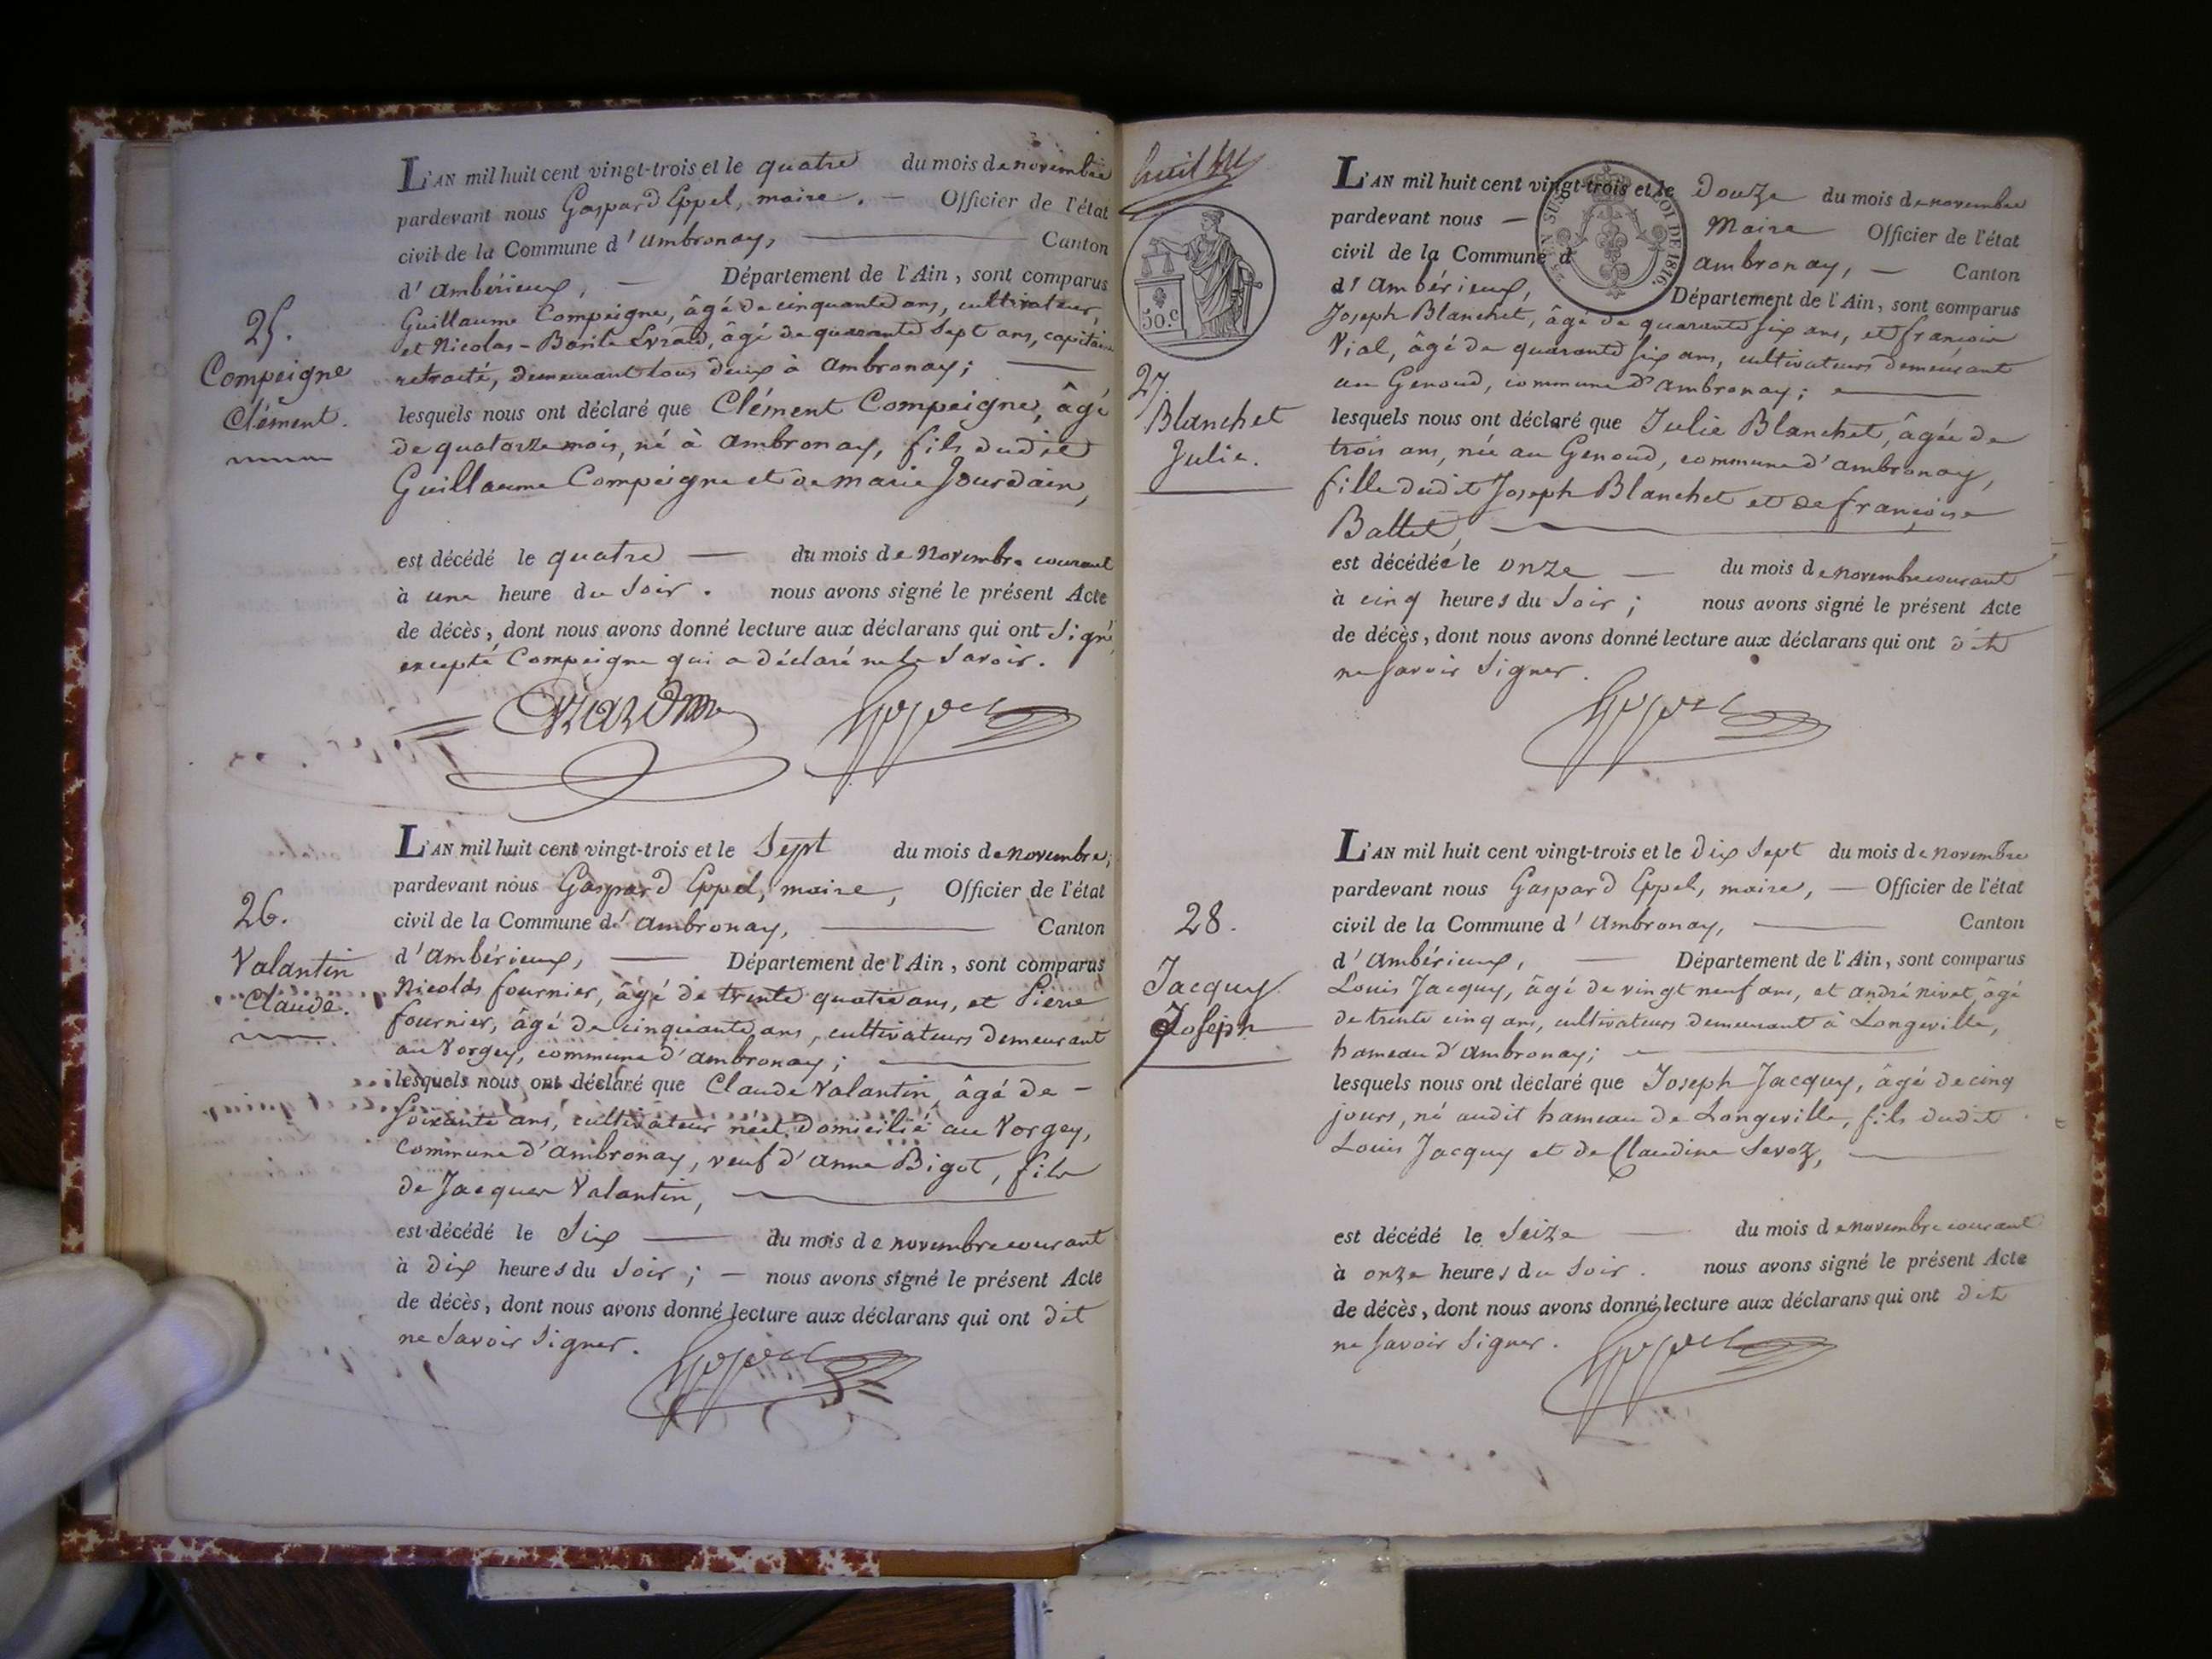 25.
Compeigne
Clément.
L'AN mil huit cent vingt-trois et le quatre du mois de novembre
pardevant nous Gaspard Eppel, maire. — Officier de l'état
civil de la Commune d'ambronay, — Canton
d'ambérieux, — Département de l'Ain, sont comparus
Guillaume Compeigne, âgé de cinquante ans, cultivateur,
et Nicolas-Basile Evrard, âgé de quarante sept ans, capitaine
retraité, demeurant tous deux à ambronay; —
lesquels nous ont déclaré que Clément Compeigne, âgé
de quatorze mois, né à ambronay, fils dudit
Guillaume Compeigne et de marie Jourdain,
est décédé le quatre — du mois de Novembre courant
à une heure du Soir. nous avons signé le présent Acte
de décès, dont nous avons donné lecture aux déclarans qui ont Signé,
excepté Compeigne qui a déclaré ne le Savoir.
Eppel
26.
Valantin
Claude.
L'AN mil huit cent vingt-trois et le Sept du mois de novembre,
pardevant nous Gaspard Eppel, maire, Officier de l'état
civil de la Commune d'ambronay, — Canton
d'ambérieux, — Département de l'Ain, sont comparus
Nicolas fournier, âgé de trente quatre ans, et Pierre
fournier, âgé de cinquante ans, cultivateurs demeurant
au Vorgey, commune d'ambronay; —
lesquels nous ont déclaré que Claude Valantin, âgé de —
Soixante ans, cultivateur né et domicilié au Vorgey,
Commune d'ambronay, veuf d'anne Bigot, fils
de Jacques Valantin, —
est décédé le Six — du mois de novembre courant
à Dix heures du Soir; — nous avons signé le présent Acte
de décès, dont nous avons donné lecture aux déclarans qui ont dit
ne Savoir Signer.
Eppel
50.c
ROI DE 1816.
27.
Blanchet
Julie.
L'AN mil huit cent vingt-trois et le Douze du mois de novembre
pardevant nous — Maire Officier de l'état
civil de la Commune d ambronay, — Canton
d'ambérieux, Département de l'Ain, sont comparus
Joseph Blanchet, âgé de quarante six ans, et françois
Vial, âgé de quarante six ans, cultivateurs demeurant
au Genoud, commune d'ambronay; —
lesquels nous ont déclaré que Julie Blanchet, âgée de
trois ans, née au Genoud, commune d'ambronay,
fille dudit Joseph Blanchet et de françoise
Ballet, —
est décédée le onze — du mois de novembre courant
à cinq heures du Soir; nous avons signé le présent Acte
de décès, dont nous avons donné lecture aux déclarans qui ont dit
ne Savoir Signer.
Eppel
28.
Jacquy
Joseph
L'AN mil huit cent vingt-trois et le dix Sept du mois de novembre
pardevant nous Gaspard Eppel, maire, — Officier de l'état
civil de la Commune d'ambronay, — Canton
d'ambérieux, — Département de l'Ain, sont comparus
Louis Jacquy, âgé de vingt neuf ans, et andré nivet, âgé
de trente cinq ans, cultivateurs demeurant à Longeville,
hameau d'ambronay; —
lesquels nous ont déclaré que Joseph Jacquy, âgé de cinq
jours, né audit hameau de Longeville, fils dudit
Louis Jacquy et de Claudine Sevoz, —
est décédé le Seize — du mois de novembre courant
à onze heures du Soir. nous avons signé le présent Acte
de décès, dont nous avons donné lecture aux déclarans qui ont dit
ne Savoir Signer.
Eppel